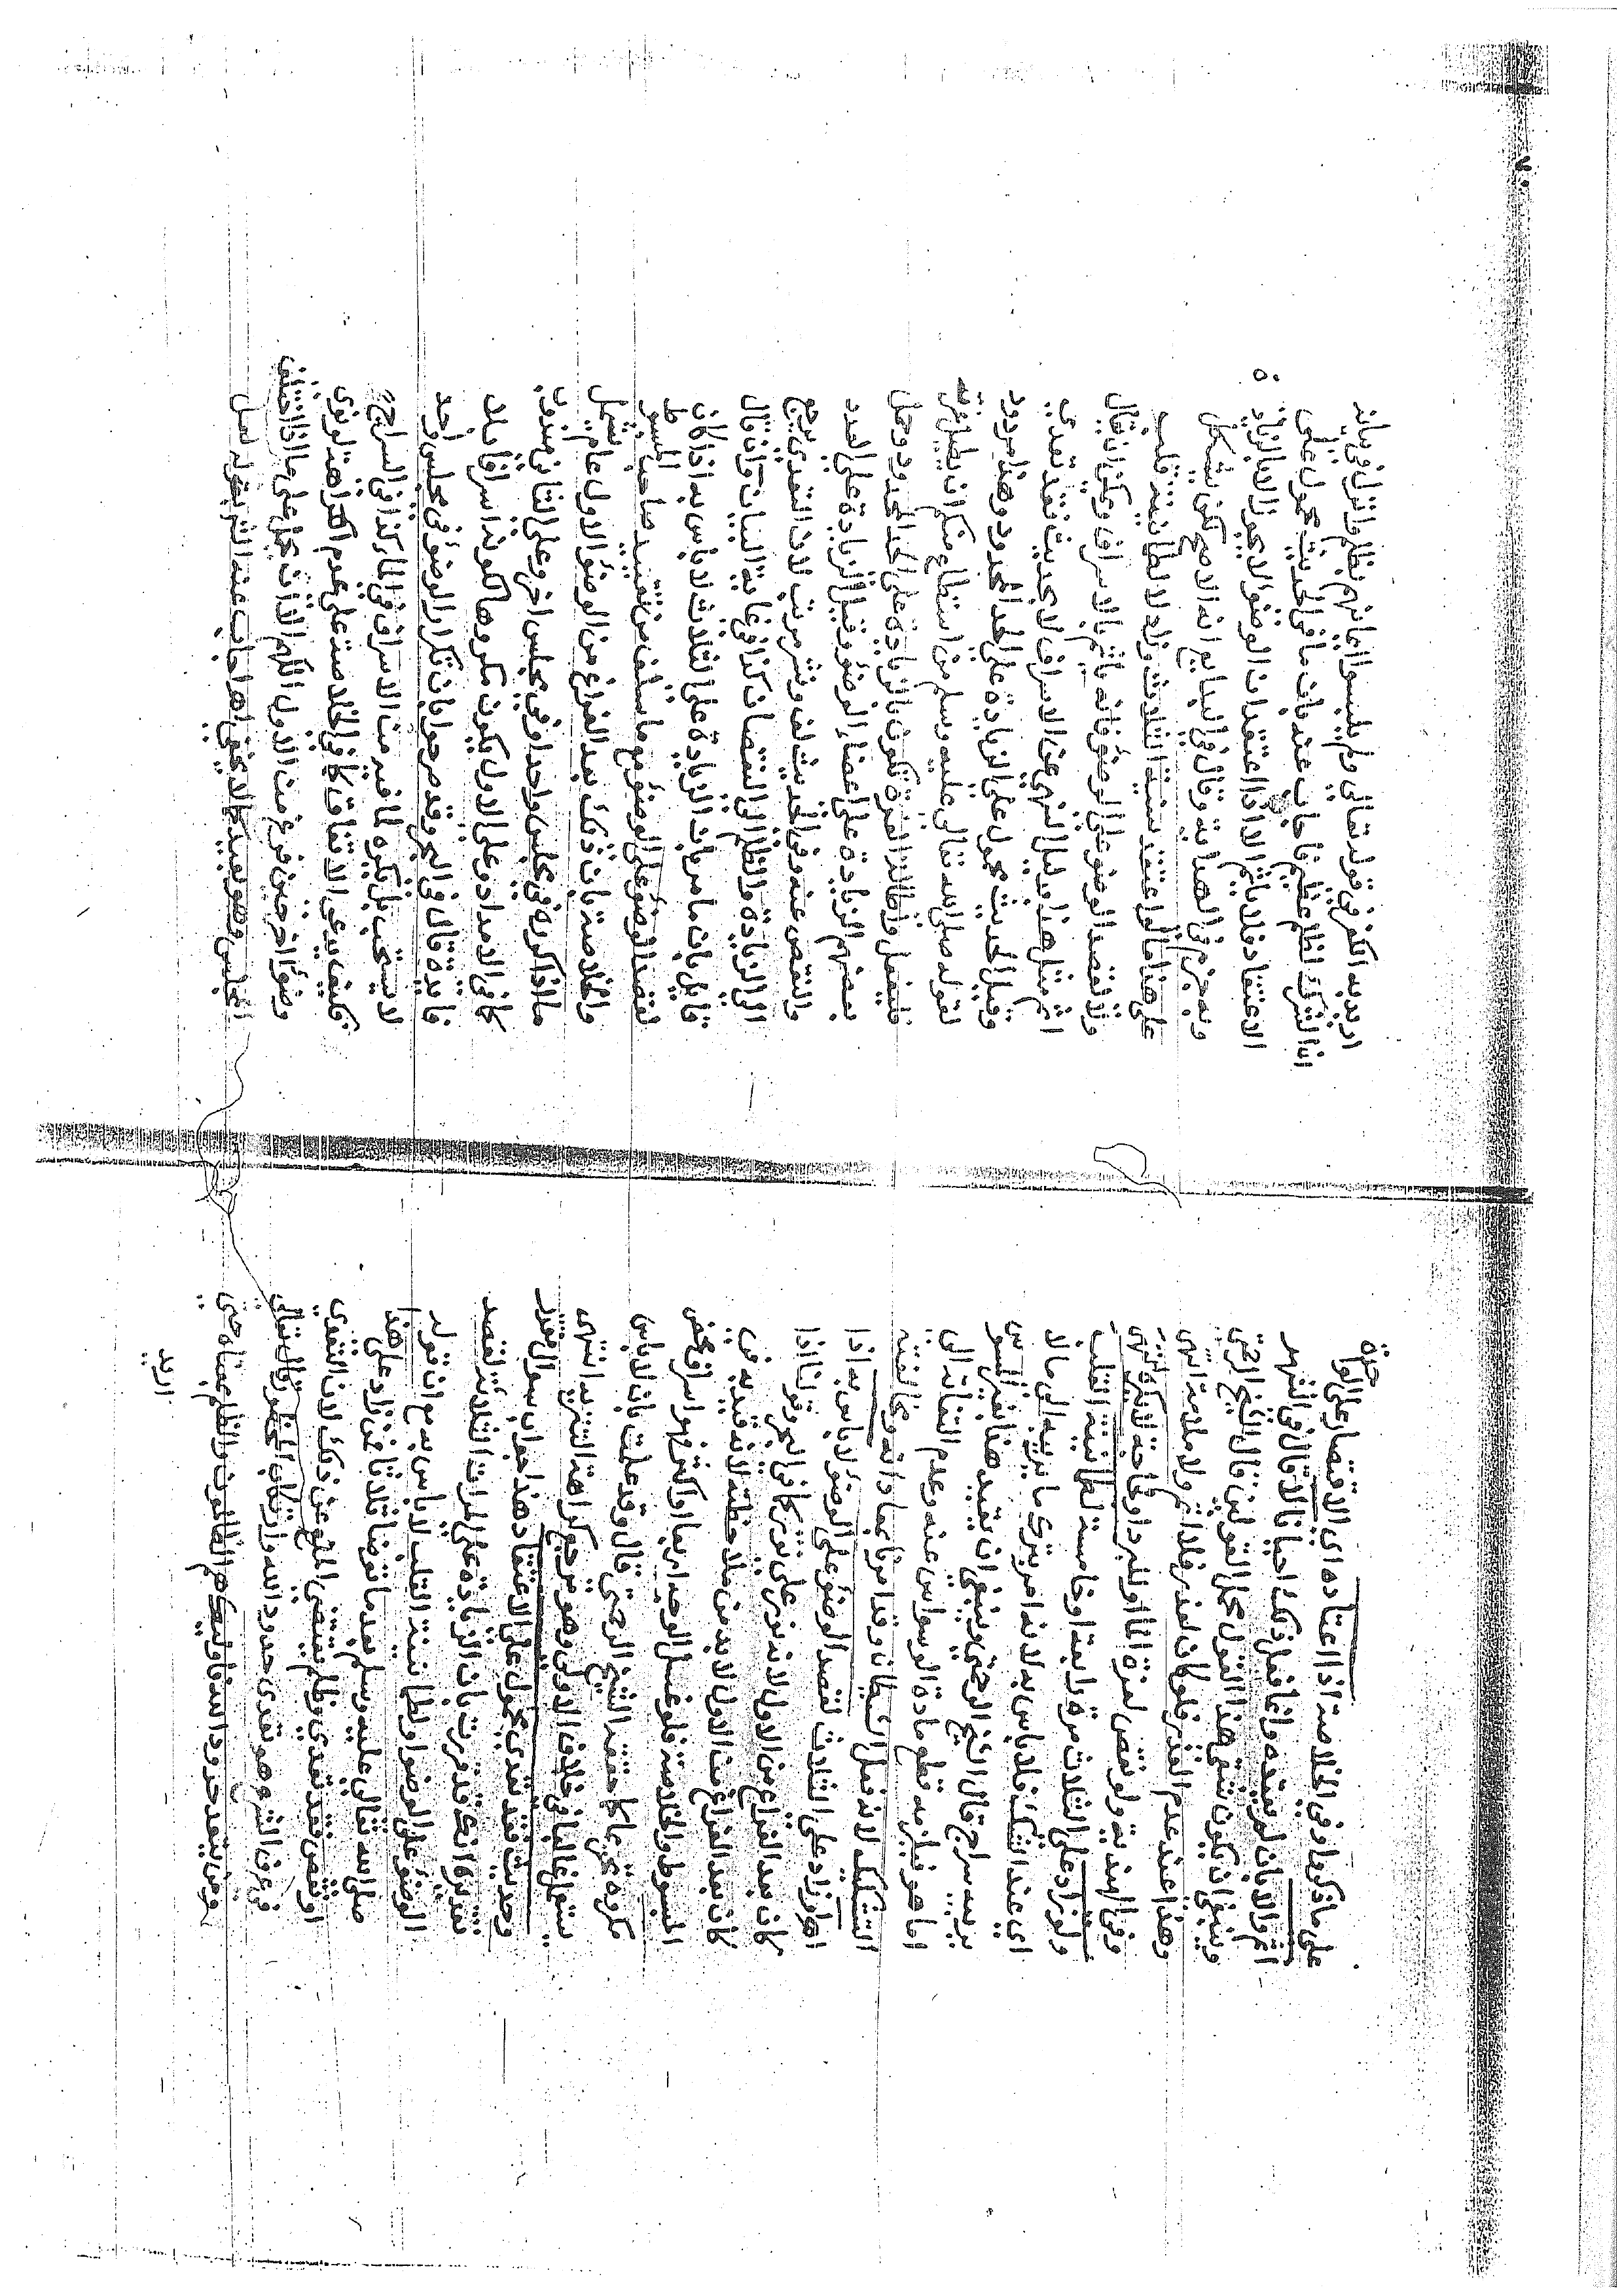 على ما ذكروا وفي الخلاصة اذا اعتاده اي الاقتصار على الواحدة
اثم والا بان لم يعتده وانما فعل ذلك احيانا لا قال في النهر
وينبغي ان يكون شق هذا القول محمل القولين قال الشيخ الرحمتي
وهذا عند عدم العذر فلو كان لعذر فلا اثم ولا ملامة انتهى
وفي الهندية ولو نقص لعزة الماء او للبرد او لحاجة لا يكره انتهى
ولو زاد على الثلاث مرة رابعة او خامسة لطمانينة القلب
اي عند الشك فلا باس به لانه امر بترك ما يريبه الى ما لا
يريبه سراج قال الشيخ الرحمتي وينبغي ان يقيد هذا بغير الموسوس
اما هو فيلزمه قطع مادة الوسواس عنه وعدم التفاته الى
التشكيك لانه فعل الشيطان وقد امرنا بمعاداته ومخالفته
اهـ او زاد على الثلاث لقصد الوضوء على الوضوء لا باس به اذا
كان بعد الفراغ من الاول لانه نور على نور كما في البحر وقولنا اذا
كان بعد الفراغ من الاول لا بد من ملاحظته لانه قيد به في
المبسوط والخلاصة فلو غسل الوجه اربعا او اكثر فهو اسراف محض
مكروه تحريما كما حققه الشيخ الرحمتي قال وقد علمت بان لا باس
يستعمل غالبا في خلاف الاولى وهو مرجع كراهة التنزيه انتهى
وحديث فقد تعدى محمول على الاعتقاد هذا جواب سؤال مقدر
تقديره انك قد قررت بان الزيادة على المرات الثلاثة لقصد
الوضوء على الوضوء او لطمانينة القلب لا باس به مع ان قوله
صلى الله تعالى عليه وسلم بعد ما توضا ثلاثا فمن زاد على هذا
او نقص فقد تعدى وظلم يقتضي المنع عن ذلك لان التعدي
في عرف الشرع هو تعدي حدود الله وارتكاب المحظور قال تعالى
ومن يتعد حدود الله فاولئك هم الظالمون والظلم بمعناه حتى
اريد
اريد به الكفر في قوله تعالى ولم يلبسوا ايمانهم بظلم وانزل في بيانه
ان الشرك لظلم عظيم فاجاب عنه بان ما في الحديث محمول على
الاعتقاد فلا ياثم الا اذا اعتقد ان الوضوء لا يجوز الا بالزيادة
وبه جزم في الهداية وقال في البدايع انه الاصح لكن يشكل
على هذا ما قالوا لو اعتقد سنية الثلاث وزاد لا لطمانينة قلب
ولا لقصد الوضوء على الوضوء فانه ياثم بالاسراف ويمكن ان يقال
اثم مثل هذا بدليل النهي عن الاسراف لا بحديث فقد تعدى
وقيل الحديث محمول على الزيادة على الحد المحدود وهذا مردود
لقوله صلى الله تعالى عليه وسلم من استطاع منكم ان يطيل غرته
فليفعل واطالة الغرة تكون بالزيادة على الحد المحدود وحمل
بعضهم الزيادة على اعضاء الوضوء وقيل الزيادة على العدد
والنقص عنه وفي الحديث لف ونشر مرتب لان التعدي يرجع
الى الزيادة والظلم الى النقصان كذا في غاية البيان وان قال
قايل بان ما مر بان الزيادة على الثلاث لا باس به اذا كان
لقصد الوضوء على الوضوء مع ما سلف من تقييد صاحب المبسوط
والخلاصة بان ذلك بعد الفراغ من الوضوء الاول عام يشمل
ما اذا كرره في مجلس واحد او في مجلس اخر وعلى الثاني مندوب
كما في الامداد وعلى الاول يكون مكروها لكونه اسرافا فلا
فايدة قال في البحر وقد صرحوا بان تكرار الوضوء في مجلس واحد
لا يستحب بل يكره لما فيه من الاسراف في الماء كذا في السراج
فكيف يدعى الاتفاق كما في الخلاصة على عدم الكراهة لو نوى
وضوءا اخر حين فرغ من الاول اللهم الا ان يحمل على ما اذا اختلف
المجلس وهو بعيد كما لا يخفى اهـ اجاب عنه النهر بقوله لعل